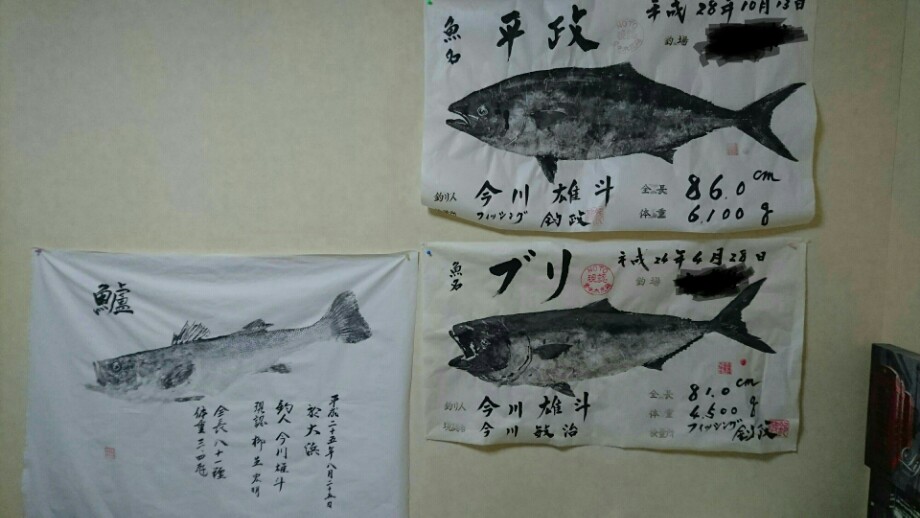 魚名 平政
平成 28年10月13日
釣場
釣り人 今川 雄斗
全長 86.0 cm
体重 6,100 g
フィッシング 釣政
魚名 ブリ
平成 26年6月28日
釣場
釣り人 今川 雄斗
今川 敏治
全長 81.0 cm
体重 4,500 g
フィッシング 釣政
鱸
平成二十五年八月二十五日
於大浜
釣人 今川雄斗
現認
全長八十一糎